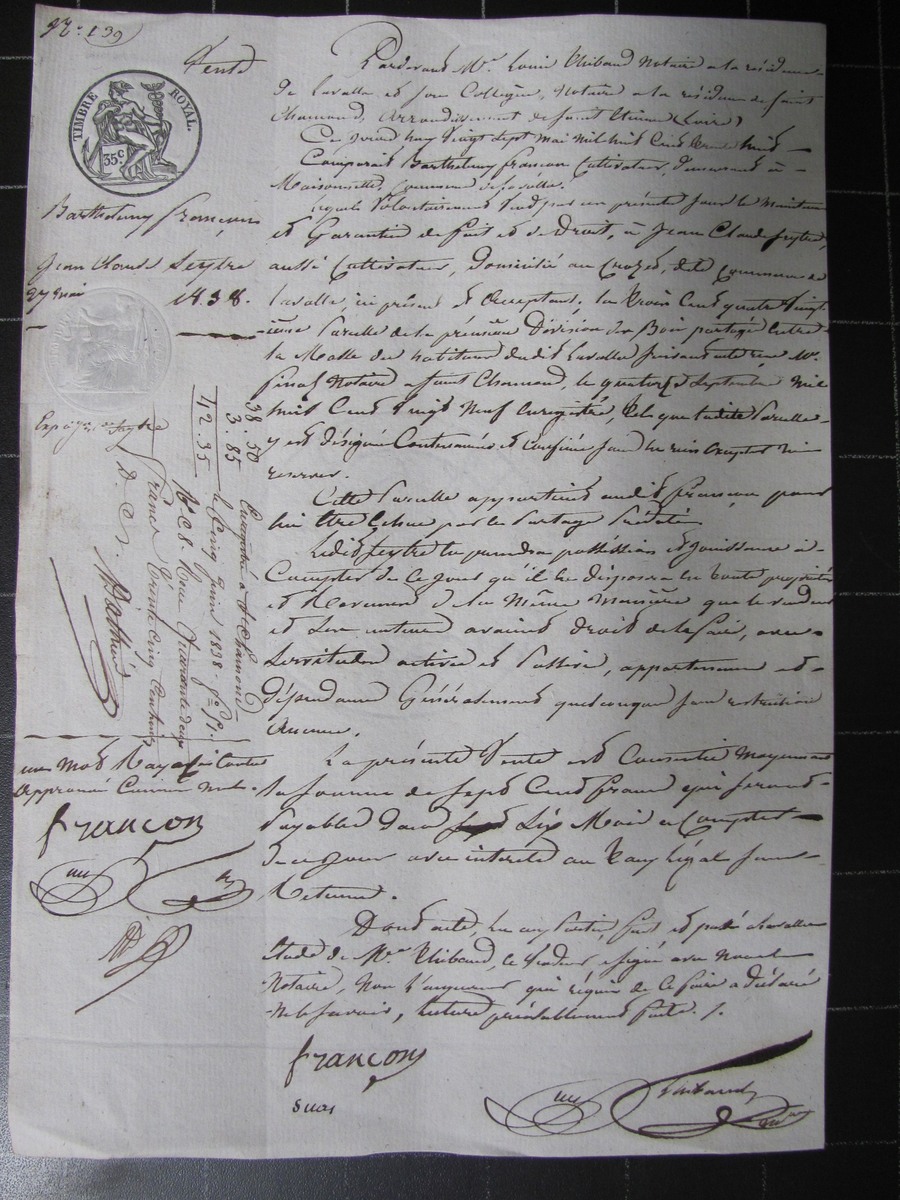 N.° 139
Vente
TIMBRE ROYAL.
35.c
Barthelemy françon
Jean Claude Seytre
27 mai 1838.
Pardevant Me. Louis Thibaud Notaire a la résidence
de Lavalla et son Collègue, Notaire a la résidence de saint
Chamond, arrondissement de saint Etienne (Loire)
Ce jourd'huy Vingt Sept Mai Mil huit Cent trente huit
Comparait Barthelemy françon Cultivateur, demeurant à
Maisonnette, Commune de Lavalla.
lequel Volontairement Vend par ces présentes sous la Maintenue
et Garantie de fait et de Droit, à Jean Claude Seytre,
aussi Cultivateur, domicilié au Crozet, dite Commune de
Lavalla, ici présent et acceptant, la trois Cent quatre Vingt
ième Parcelle de la première Division des Bois partagés Entre
la Masse des habitans dudit Lavalla suivant acte reçu Me.
finaz Notaire a saint Chamond, le quatorze Septembre Mil
huit Cent Vingt Neuf Enregistré, telle que ladite Parcelle
y est désignée Contenances et Confins sans en rien excepter ni
reserver.
Cette Parcelle appartient audit françon pour
lui être échue par le Partage Précité
Ledit Seytre en prendra possession et Jouissance à
Compter de Ce jour qu'il en disposera en toute propriété
et de la Même Manière que le vendeur
et Les auteurs avaient droit de le faire, avec
Servitudes actives et Passives, appartenances et
dépendances Généralement quelconques sans restriction
Aucune.
La présente Vente est Consentie Moyennant
la somme de Sept Cent francs qui seront
Payables dans Six Mois a Compter
de ce jour avec intérêts au taux légal sans
Retenue.
Dont acte, fait et passé a Lavalla
Etude de Me. Thibaud, le Vendeur a signé avec Nous
Notaires, Non l'acquéreur qui réquis de le faire a déclaré
Ne le savoir, lecture préalablement faite. /.
françon
Thibaud
38. 50
3. 85
42. 35
Enregistré à St Chamond
le Cinq Juin 1838. fo. 51.
No C 8. Reçu Quarante deux
Francs Trente Cinq Centimes
un Mot Rayé
approuvé Comme nul.
françon